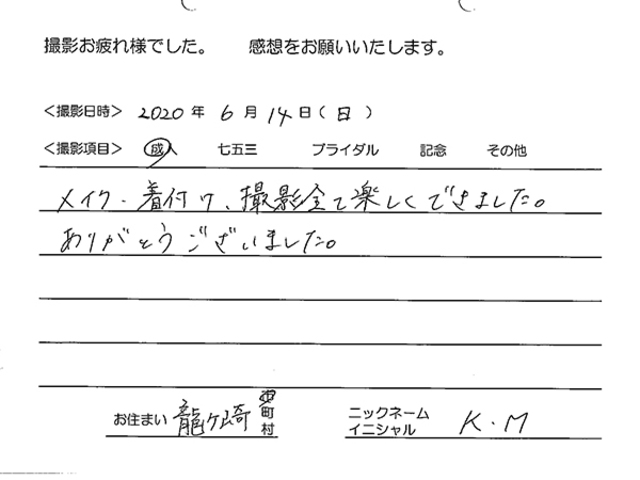 撮影お疲れ様でした。 感想をお願いいたします。
<撮影日時> 2020 年 6 月 14 日 ( 日 )
<撮影項目> 成人 七五三 ブライダル 記念 その他
メイク・着付け、撮影全て楽しくできました。
ありがとうございました。
お住まい 龍ヶ崎 市町村 ニックネーム イニシャル K.M